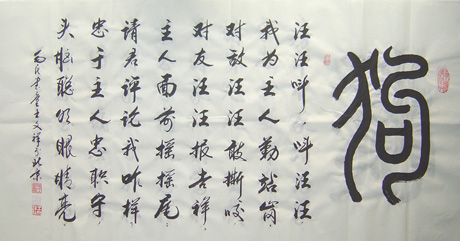 狗
汪汪叫，叫汪汪
我为主人勤站岗
对敌汪汪敢撕咬
对友汪汪报吉祥
主人面前摇摇尾
请君评论我咋样
忠于主人忠职守
头脑聪明眼睛亮